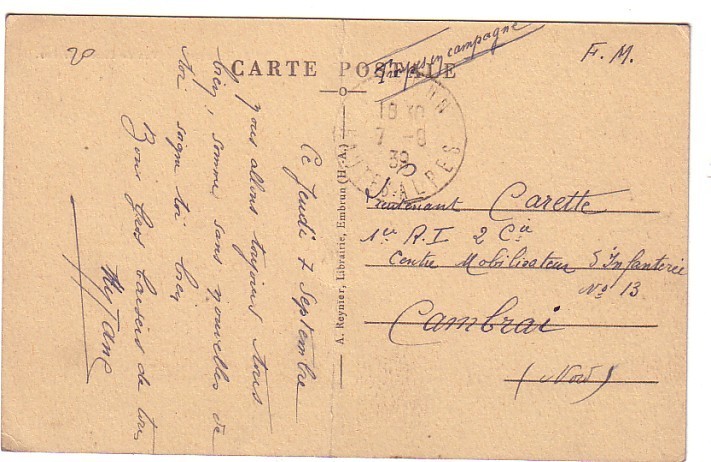 20
Troupes en campagne
F. M.
CARTE POSTALE
18 30
7 - 9
39
HAUTES-ALPES
Ce Jeudi 7 Septembre
nous allons toujours tous
bien, sommes sans nouvelles de
toi soigne toi bien
Bons gros baisers de tous
A. Reynier, Librairie, Embrun (H.-A.)
Lieutenant Carette
1er R.I 2 Cie
Centre Mobilisateur d'Infanterie
No 13
Cambrai
(Nord)